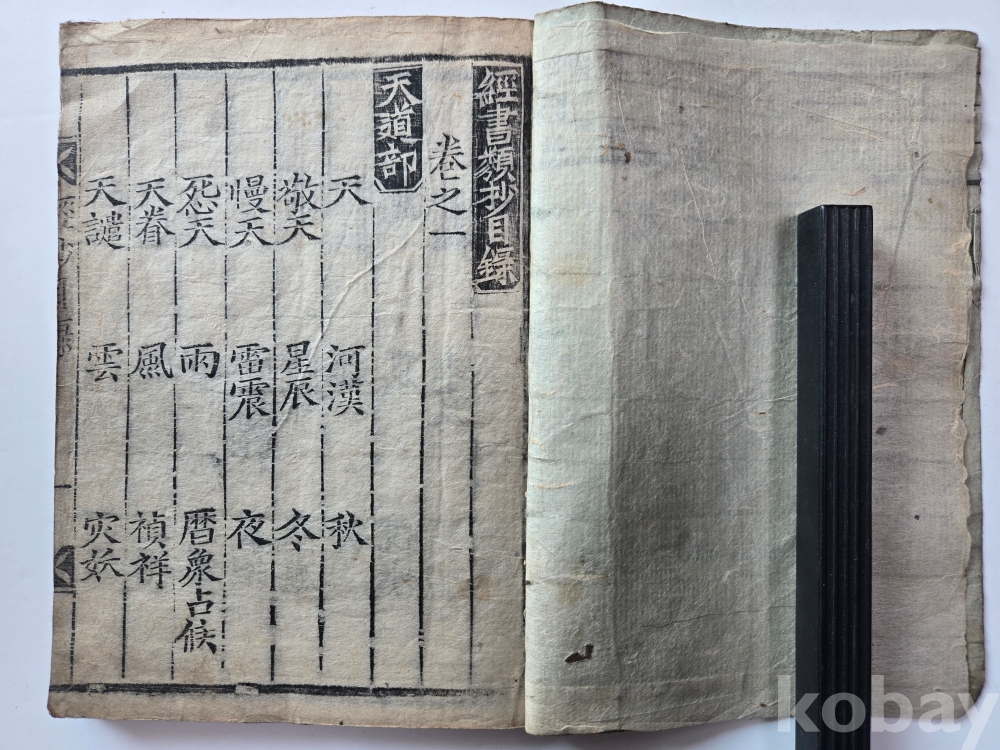 經書類抄目錄
卷之一
天道部
天 河漢 秋
敬天 星辰 冬
慢天 雷震 夜
怨天 雨 暦象占候
天眷 風 禎祥
天譴 雲 灾妖
kobay